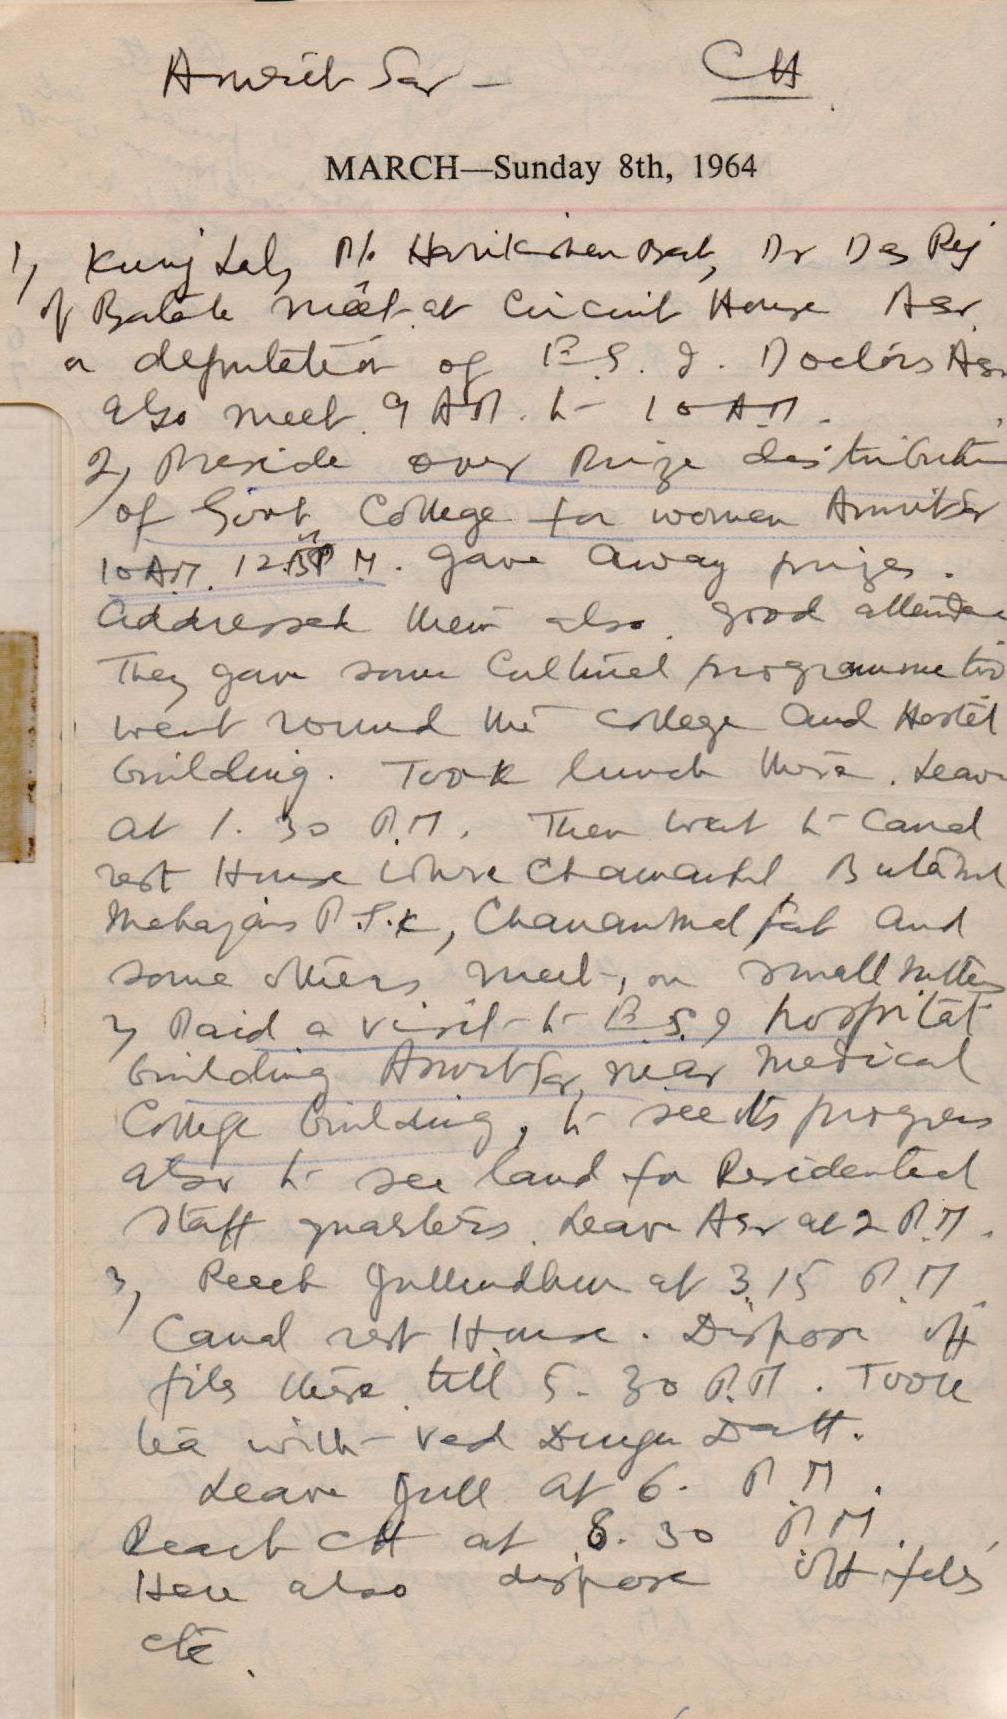 Amrit Sar - CH
MARCH—Sunday 8th, 1964
1, Kunj Lal, Harikishen Dr Des Raj
of Batala meet at Circuit House Asr.
a deputation of E.S.I. Doctors Asr
also meet 9 AM. to 10 AM.
2, Preside over Prize distribution
of Govt College for women AmritSar
10 AM. 12 P M. gave away prizes.
Addressed them also. good attendance
They gave some Cultural programme too
went round the College and Hostel
building. Took lunch there. Leave
at 1.30 P.M. Then went to Canal
rest House where
Mahajans and
some others meet, on small matters
Paid a visit to E S I hospital
building AmritSar, near Medical
College building, to see its progress
also to see land for Residential
staff quarters. Leave Asr at 2 P.M.
3, Reach Jullundhur at 3.15 P.M
Canal rest House. Dispose off
files there till 5.30 P.M. Took
tea with Ved Durga Datt.
Leave Jull at 6. P M.
Reach CH at 8.30 P.M.
Here also dispose off files
etc.